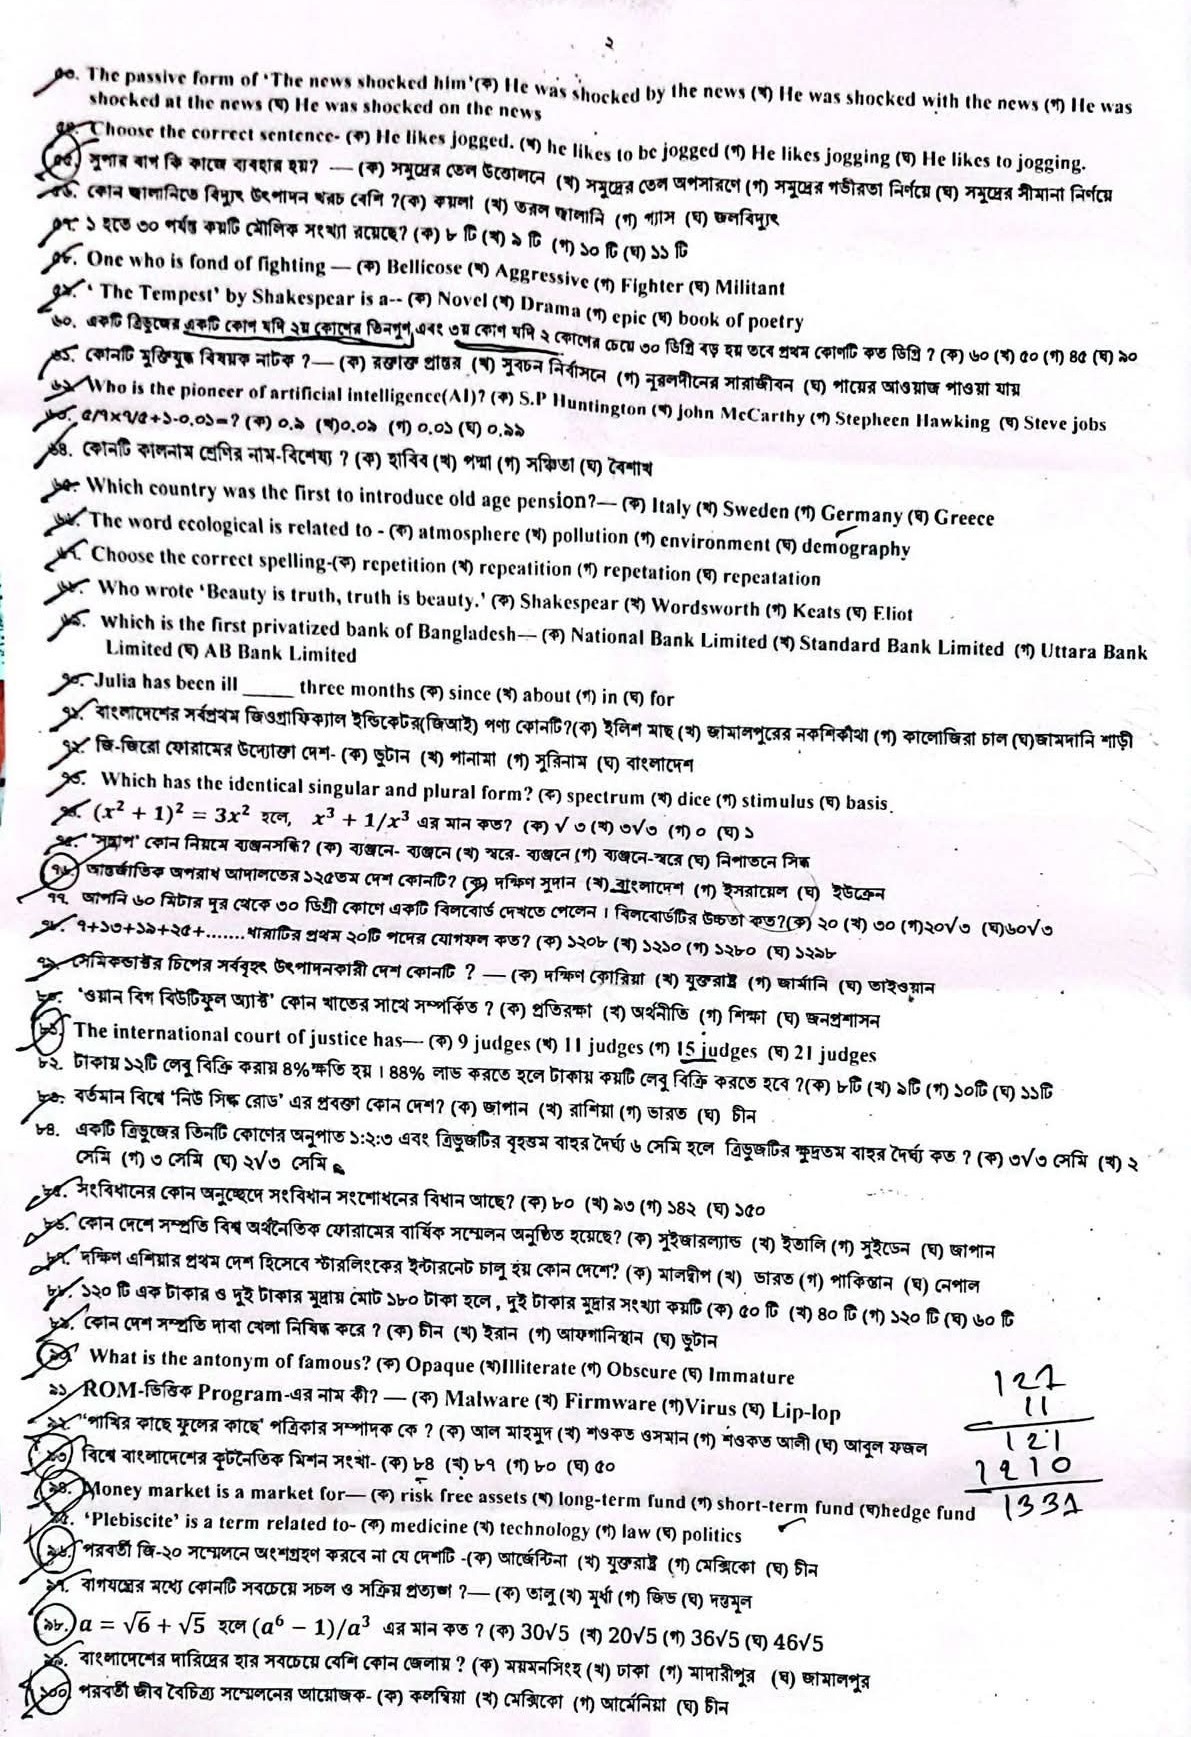 ২
৫৩. The passive form of ‘The news shocked him’(ক) He was shocked by the news (খ) He was shocked with the news (গ) He was
shocked at the news (ঘ) He was shocked on the news
৫৪. Choose the correct sentence- (ক) He likes jogged. (খ) he likes to be jogged (গ) He likes jogging (ঘ) He likes to jogging.
৫৫. সুপার বাগ কি কাজে ব্যবহার হয়? — (ক) সমুদ্রের তেল উত্তোলনে (খ) সমুদ্রের তেল অপসারণে (গ) সমুদ্রের গভীরতা নির্ণয়ে (ঘ) সমুদ্রের সীমানা নির্ণয়ে
৫৬. কোন জ্বালানিতে বিদ্যুৎ উৎপাদন খরচ বেশি ?(ক) কয়লা (খ) তরল জ্বালানি (গ) গ্যাস (ঘ) জলবিদ্যুৎ
৫৭. ১ হতে ৩০ পর্যন্ত কয়টি মৌলিক সংখ্যা রয়েছে? (ক) ৮ টি (খ) ৯ টি (গ) ১০ টি (ঘ) ১১ টি
৫৮. One who is fond of fighting — (ক) Bellicose (খ) Aggressive (গ) Fighter (ঘ) Militant
৫৯. ‘ The Tempest’ by Shakespear is a-- (ক) Novel (খ) Drama (গ) epic (ঘ) book of poetry
৬০. একটি ত্রিভুজের একটি কোণ যদি ২য় কোণের তিনগুণ এবং ৩য় কোণ যদি ২ কোণের চেয়ে ৩০ ডিগ্রি বড় হয় তবে প্রথম কোণটি কত ডিগ্রি ? (ক) ৬০ (খ) ৫০ (গ) ৪৫ (ঘ) ৯০
৬১. কোনটি মুক্তিযুদ্ধ বিষয়ক নাটক ?— (ক) রক্তাক্ত প্রান্তর (খ) সুবচন নির্বাসনে (গ) নূরলদীনের সারাজীবন (ঘ) পায়ের আওয়াজ পাওয়া যায়
৬২. Who is the pioneer of artificial intelligence(AI)? (ক) S.P Huntington (খ) john McCarthy (গ) Stepheen Hawking (ঘ) Steve jobs
৬৩. ৫/৭×৭/৫+১-০.০১=? (ক) ০.৯ (খ)০.০৯ (গ) ০.০১ (ঘ) ০.৯৯
৬৪. কোনটি কালনাম শ্রেণির নাম-বিশেষ্য ? (ক) হাবিব (খ) পদ্মা (গ) সঞ্চিতা (ঘ) বৈশাখ
৬৫. Which country was the first to introduce old age pension?— (ক) Italy (খ) Sweden (গ) Germany (ঘ) Greece
৬৬. The word ecological is related to - (ক) atmosphere (খ) pollution (গ) environment (ঘ) demography
৬৭. Choose the correct spelling-(ক) repetition (খ) repeatition (গ) repetation (ঘ) repeatation
৬৮. Who wrote ‘Beauty is truth, truth is beauty.’ (ক) Shakespear (খ) Wordsworth (গ) Keats (ঘ) Eliot
৬৯. which is the first privatized bank of Bangladesh— (ক) National Bank Limited (খ) Standard Bank Limited (গ) Uttara Bank
Limited (ঘ) AB Bank Limited
৭০. Julia has been ill _____ three months (ক) since (খ) about (গ) in (ঘ) for
৭১. বাংলাদেশের সর্বপ্রথম জিওগ্রাফিক্যাল ইন্ডিকেটর(জিআই) পণ্য কোনটি?(ক) ইলিশ মাছ (খ) জামালপুরের নকশিকাঁথা (গ) কালোজিরা চাল (ঘ)জামদানি শাড়ী
৭২. জি-জিরো ফোরামের উদ্যোক্তা দেশ- (ক) ভুটান (খ) পানামা (গ) সুরিনাম (ঘ) বাংলাদেশ
৭৩. Which has the identical singular and plural form? (ক) spectrum (খ) dice (গ) stimulus (ঘ) basis.
৭৪. (x² + 1)² = 3x² হলে, x³ + 1/x³ এর মান কত? (ক) √ ৩ (খ) ৩√৩ (গ) ০ (ঘ) ১
৭৫. কোন নিয়মে ব্যঞ্জনসন্ধি? (ক) ব্যঞ্জনে- ব্যঞ্জনে (খ) স্বরে- ব্যঞ্জনে (গ) ব্যঞ্জনে-স্বরে (ঘ) নিপাতনে সিদ্ধ
৭৬. আন্তর্জাতিক অপরাধ আদালতের ১২৫তম দেশ কোনটি? (ক) দক্ষিণ সুদান (খ) বাংলাদেশ (গ) ইসরায়েল (ঘ) ইউক্রেন
৭৭. আপনি ৬০ মিটার দূর থেকে ৩০ ডিগ্রী কোণে একটি বিলবোর্ড দেখতে পেলেন । বিলবোর্ডটির উচ্চতা কত?(ক) ২০ (খ) ৩০ (গ)২০√৩ (ঘ)৬০√৩
৭৮. ৭+১৩+১৯+২৫+.......ধারাটির প্রথম ২০টি পদের যোগফল কত? (ক) ১২০৮ (খ) ১২১০ (গ) ১২৮০ (ঘ) ১২৯৮
৭৯. সেমিকন্ডাক্টর চিপের সর্ববৃহৎ উৎপাদনকারী দেশ কোনটি ? — (ক) দক্ষিণ কোরিয়া (খ) যুক্তরাষ্ট্র (গ) জার্মানি (ঘ) তাইওয়ান
৮০. ‘ওয়ান বিগ বিউটিফুল অ্যাক্ট’ কোন খাতের সাথে সম্পর্কিত ? (ক) প্রতিরক্ষা (খ) অর্থনীতি (গ) শিক্ষা (ঘ) জনপ্রশাসন
৮১. The international court of justice has— (ক) 9 judges (খ) 11 judges (গ) 15 judges (ঘ) 21 judges
৮২. টাকায় ১২টি লেবু বিক্রি করায় ৪%ক্ষতি হয় । ৪৪% লাভ করতে হলে টাকায় কয়টি লেবু বিক্রি করতে হবে ?(ক) ৮টি (খ) ৯টি (গ) ১০টি (ঘ) ১১টি
৮৩. বর্তমান বিশ্বে ‘নিউ সিল্ক রোড’ এর প্রবক্তা কোন দেশ? (ক) জাপান (খ) রাশিয়া (গ) ভারত (ঘ) চীন
৮৪. একটি ত্রিভুজের তিনটি কোণের অনুপাত ১:২:৩ এবং ত্রিভুজটির বৃহত্তম বাহুর দৈর্ঘ্য ৬ সেমি হলে ত্রিভুজটির ক্ষুদ্রতম বাহুর দৈর্ঘ্য কত ? (ক) ৩√৩ সেমি (খ) ২
সেমি (গ) ৩ সেমি (ঘ) ২√৩ সেমি
৮৫. সংবিধানের কোন অনুচ্ছেদে সংবিধান সংশোধনের বিধান আছে? (ক) ৮০ (খ) ৯৩ (গ) ১৪২ (ঘ) ১৫০
৮৬. কোন দেশে সম্প্রতি বিশ্ব অর্থনৈতিক ফোরামের বার্ষিক সম্মেলন অনুষ্ঠিত হয়েছে? (ক) সুইজারল্যান্ড (খ) ইতালি (গ) সুইডেন (ঘ) জাপান
৮৭. দক্ষিণ এশিয়ার প্রথম দেশ হিসেবে স্টারলিংকের ইন্টারনেট চালু হয় কোন দেশে? (ক) মালদ্বীপ (খ) ভারত (গ) পাকিস্তান (ঘ) নেপাল
৮৮. ১২০ টি এক টাকার ও দুই টাকার মুদ্রায় মোট ১৮০ টাকা হলে , দুই টাকার মুদ্রার সংখ্যা কয়টি (ক) ৫০ টি (খ) ৪০ টি (গ) ১২০ টি (ঘ) ৬০ টি
৮৯. কোন দেশ সম্প্রতি দাবা খেলা নিষিদ্ধ করে ? (ক) চীন (খ) ইরান (গ) আফগানিস্থান (ঘ) ভুটান
৯০. What is the antonym of famous? (ক) Opaque (খ)Illiterate (গ) Obscure (ঘ) Immature
৯১. ROM-ভিত্তিক Program-এর নাম কী? — (ক) Malware (খ) Firmware (গ)Virus (ঘ) Lip-lop
৯২. “পাখির কাছে ফুলের কাছে’ পত্রিকার সম্পাদক কে ? (ক) আল মাহমুদ (খ) শওকত ওসমান (গ) শওকত আলী (ঘ) আবুল ফজল
৯৩. বিশ্বে বাংলাদেশের কূটনৈতিক মিশন সংখ্যা- (ক) ৮৪ (খ) ৮৭ (গ) ৮০ (ঘ) ৫০
৯৪. Money market is a market for— (ক) risk free assets (খ) long-term fund (গ) short-term fund (ঘ)hedge fund
৯৫. ‘Plebiscite’ is a term related to- (ক) medicine (খ) technology (গ) law (ঘ) politics
৯৬. পরবর্তী জি-২০ সম্মেলনে অংশগ্রহণ করবে না যে দেশটি -(ক) আর্জেন্টিনা (খ) যুক্তরাষ্ট্র (গ) মেক্সিকো (ঘ) চীন
৯৭. বাগযন্ত্রের মধ্যে কোনটি সবচেয়ে সচল ও সক্রিয় প্রত্যঙ্গ ?— (ক) তালু (খ) মূর্ধা (গ) জিভ (ঘ) দন্তমূল
৯৮. a = √6 + √5 হলে (a⁶ − 1)/a³ এর মান কত ? (ক) 30√5 (খ) 20√5 (গ) 36√5 (ঘ) 46√5
৯৯. বাংলাদেশের দারিদ্রের হার সবচেয়ে বেশি কোন জেলায় ? (ক) ময়মনসিংহ (খ) ঢাকা (গ) মাদারীপুর (ঘ) জামালপুর
১০০. পরবর্তী জীব বৈচিত্র্য সম্মেলনের আয়োজক- (ক) কলম্বিয়া (খ) মেক্সিকো (গ) আর্মেনিয়া (ঘ) চীন
121
11
121
1210
1331